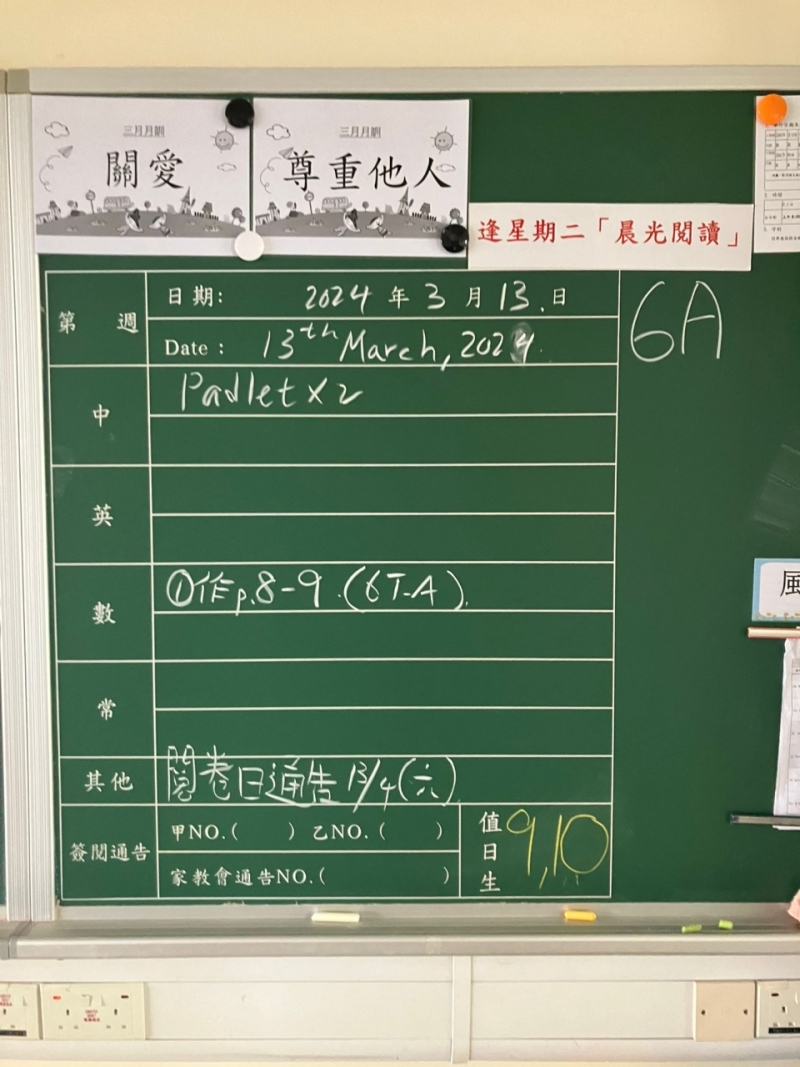 三月月訓
關愛
三月月訓
尊重他人
逢星期二「晨光閱讀」
第 週
日期: 2024 年 3 月 13 日
Date : 13th March, 2024.
6A
中
Padlet x 2
英
數
①作p.8-9.(6T-A).
常
其他
閱卷日通告 13/4(六)
簽閱通告
甲NO.( ) 乙NO.( )
家教會通告NO.( )
值日生
9,10
風